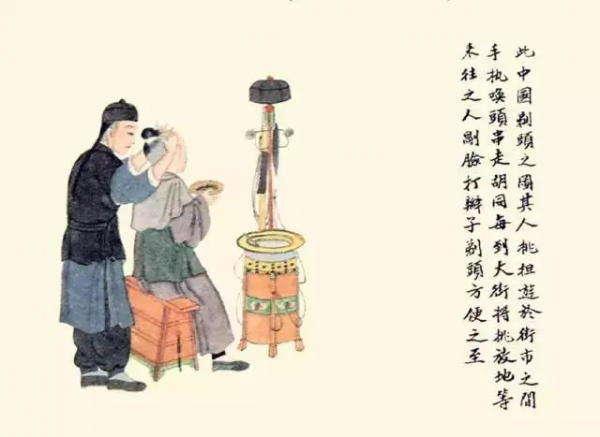 此中國剃頭之圖其人挑担遊於街市之間
手执喚頭串走胡同每到大街将挑放地等
来往之人剃臉打辮子剃頭方便之至